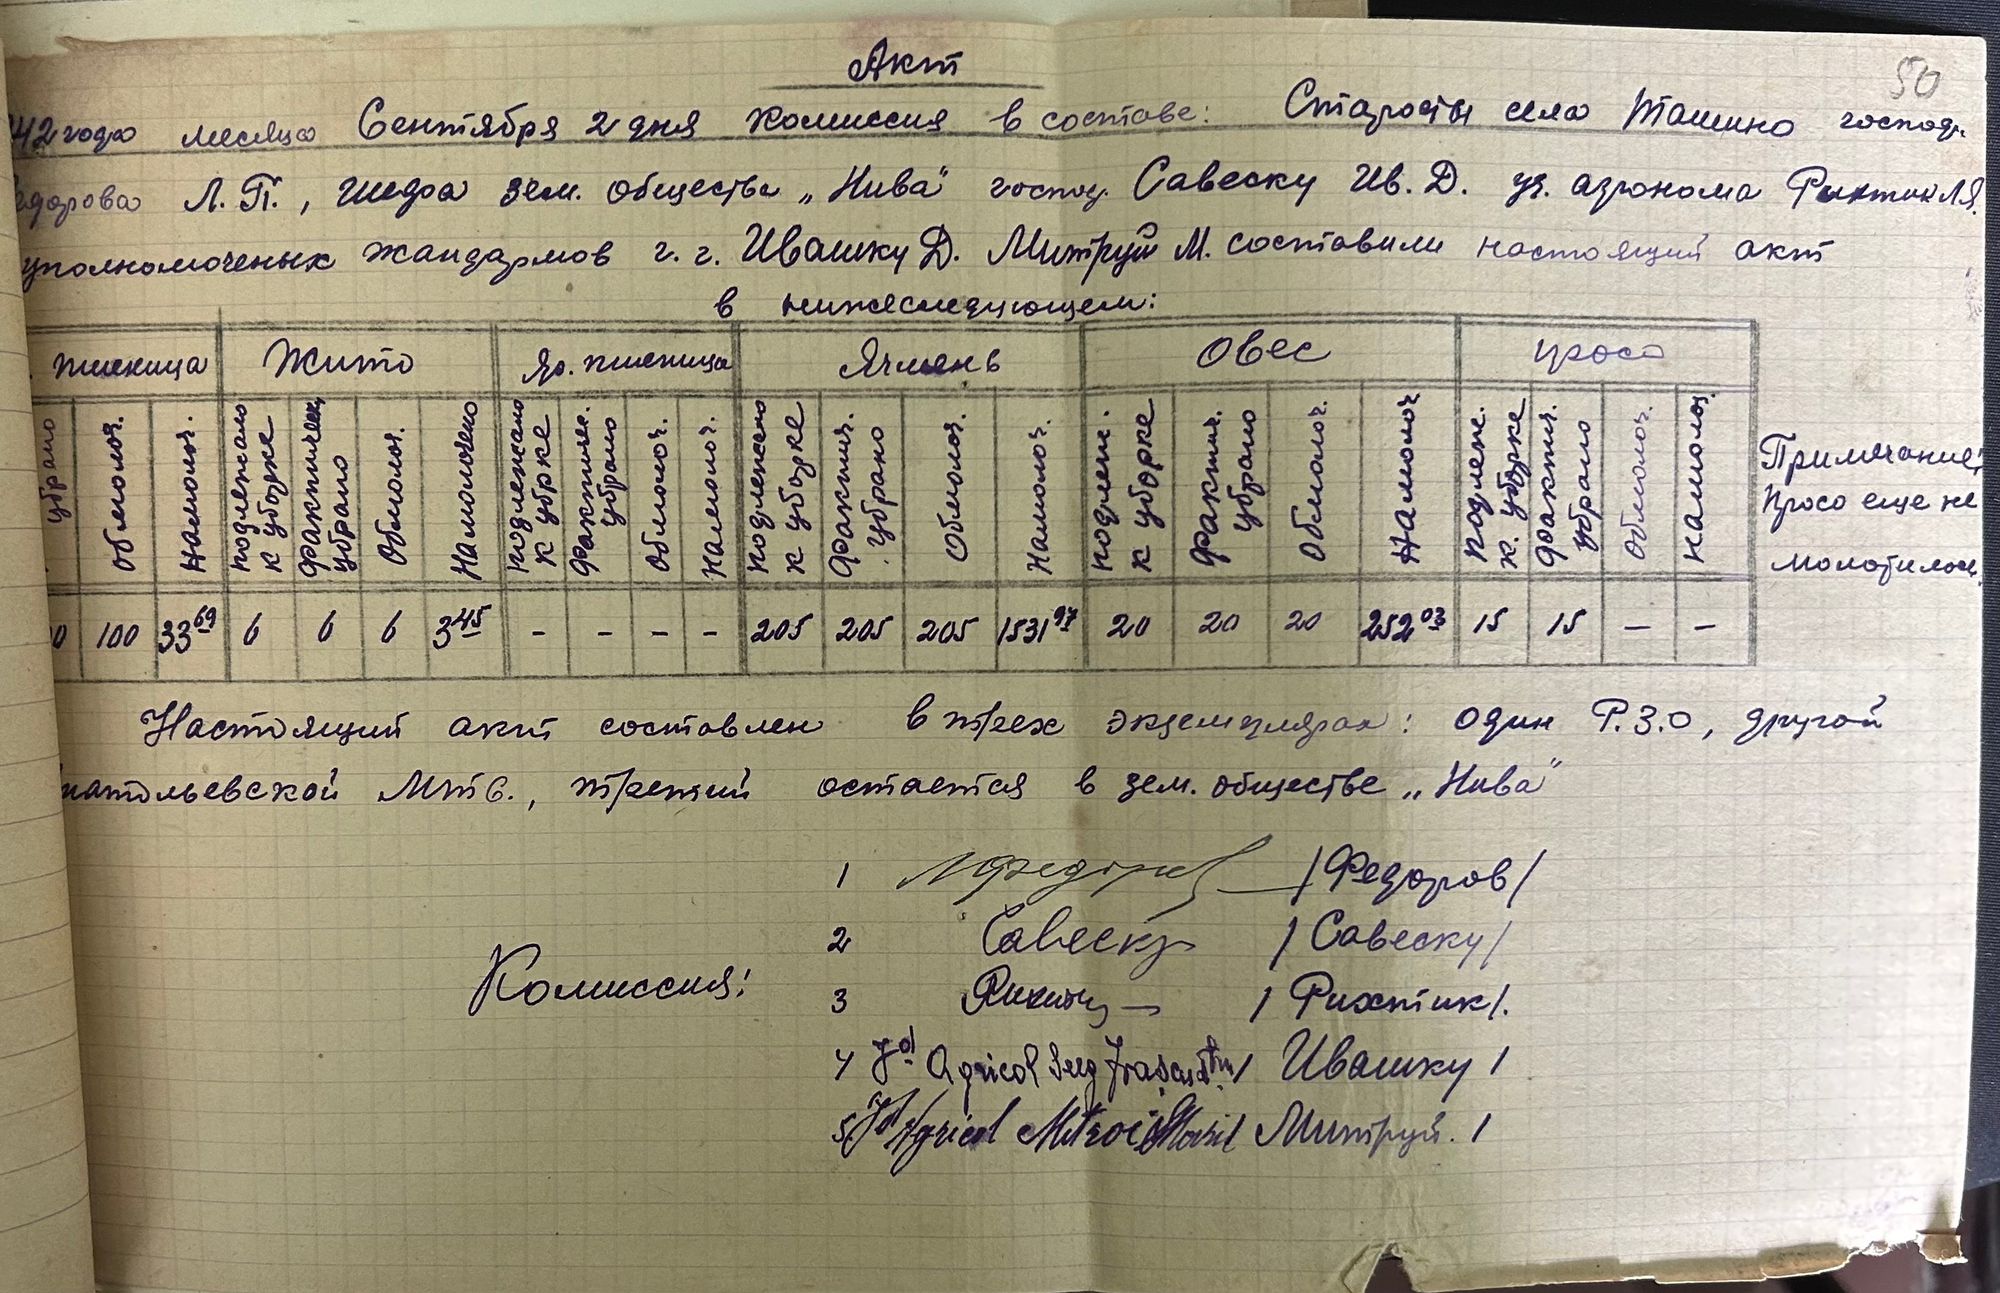 50
Акт
42 года месяца Сентября 2 дня комиссия в составе: Старосты села Ташино господ.
едорова Л.П., шефа зем. общества „Нива" господ. Савеску Ив. Д. уч. агронома Рихтик Л.Я.
уполномоченых жандармов г.г. Ивашку Д. Митруй М. составили настоящий акт
в нижеследующем:
пшеница Жито Яр. пшеница Ячмень Овес просо
убрано обмолоч. намолоч. подлежало к уборке фактическ. убрано обмолоч. намолочено подлежало к убрке фактичек. убрано обмолоч. намолоч. подлежало к уборке фактич. убрано обмолоч. намолоч. подлеж. к уборке фактич. убрано обмолоч. намолоч подлеж. к. уборке фактич убрано обмолоч. намолоч.
0 100 33 69 6 6 6 3 45 - - - - 205 205 205 1531 97 20 20 20 252 03 15 15 - -
Примечание:
Просо еще не
молотилось.
Настоящий акт составлен в трех экземплярах: один Р.З.О, другой
натольевской Мтс., третий остается в зем. обществе „Нива"
Комиссия:
1 ЛФедоров /Федоров/
2 Савеску /Савеску/
3 /Рихтик/.
4 Agricol / Ивашку /
5 Agricol Mitroi Митруй. /